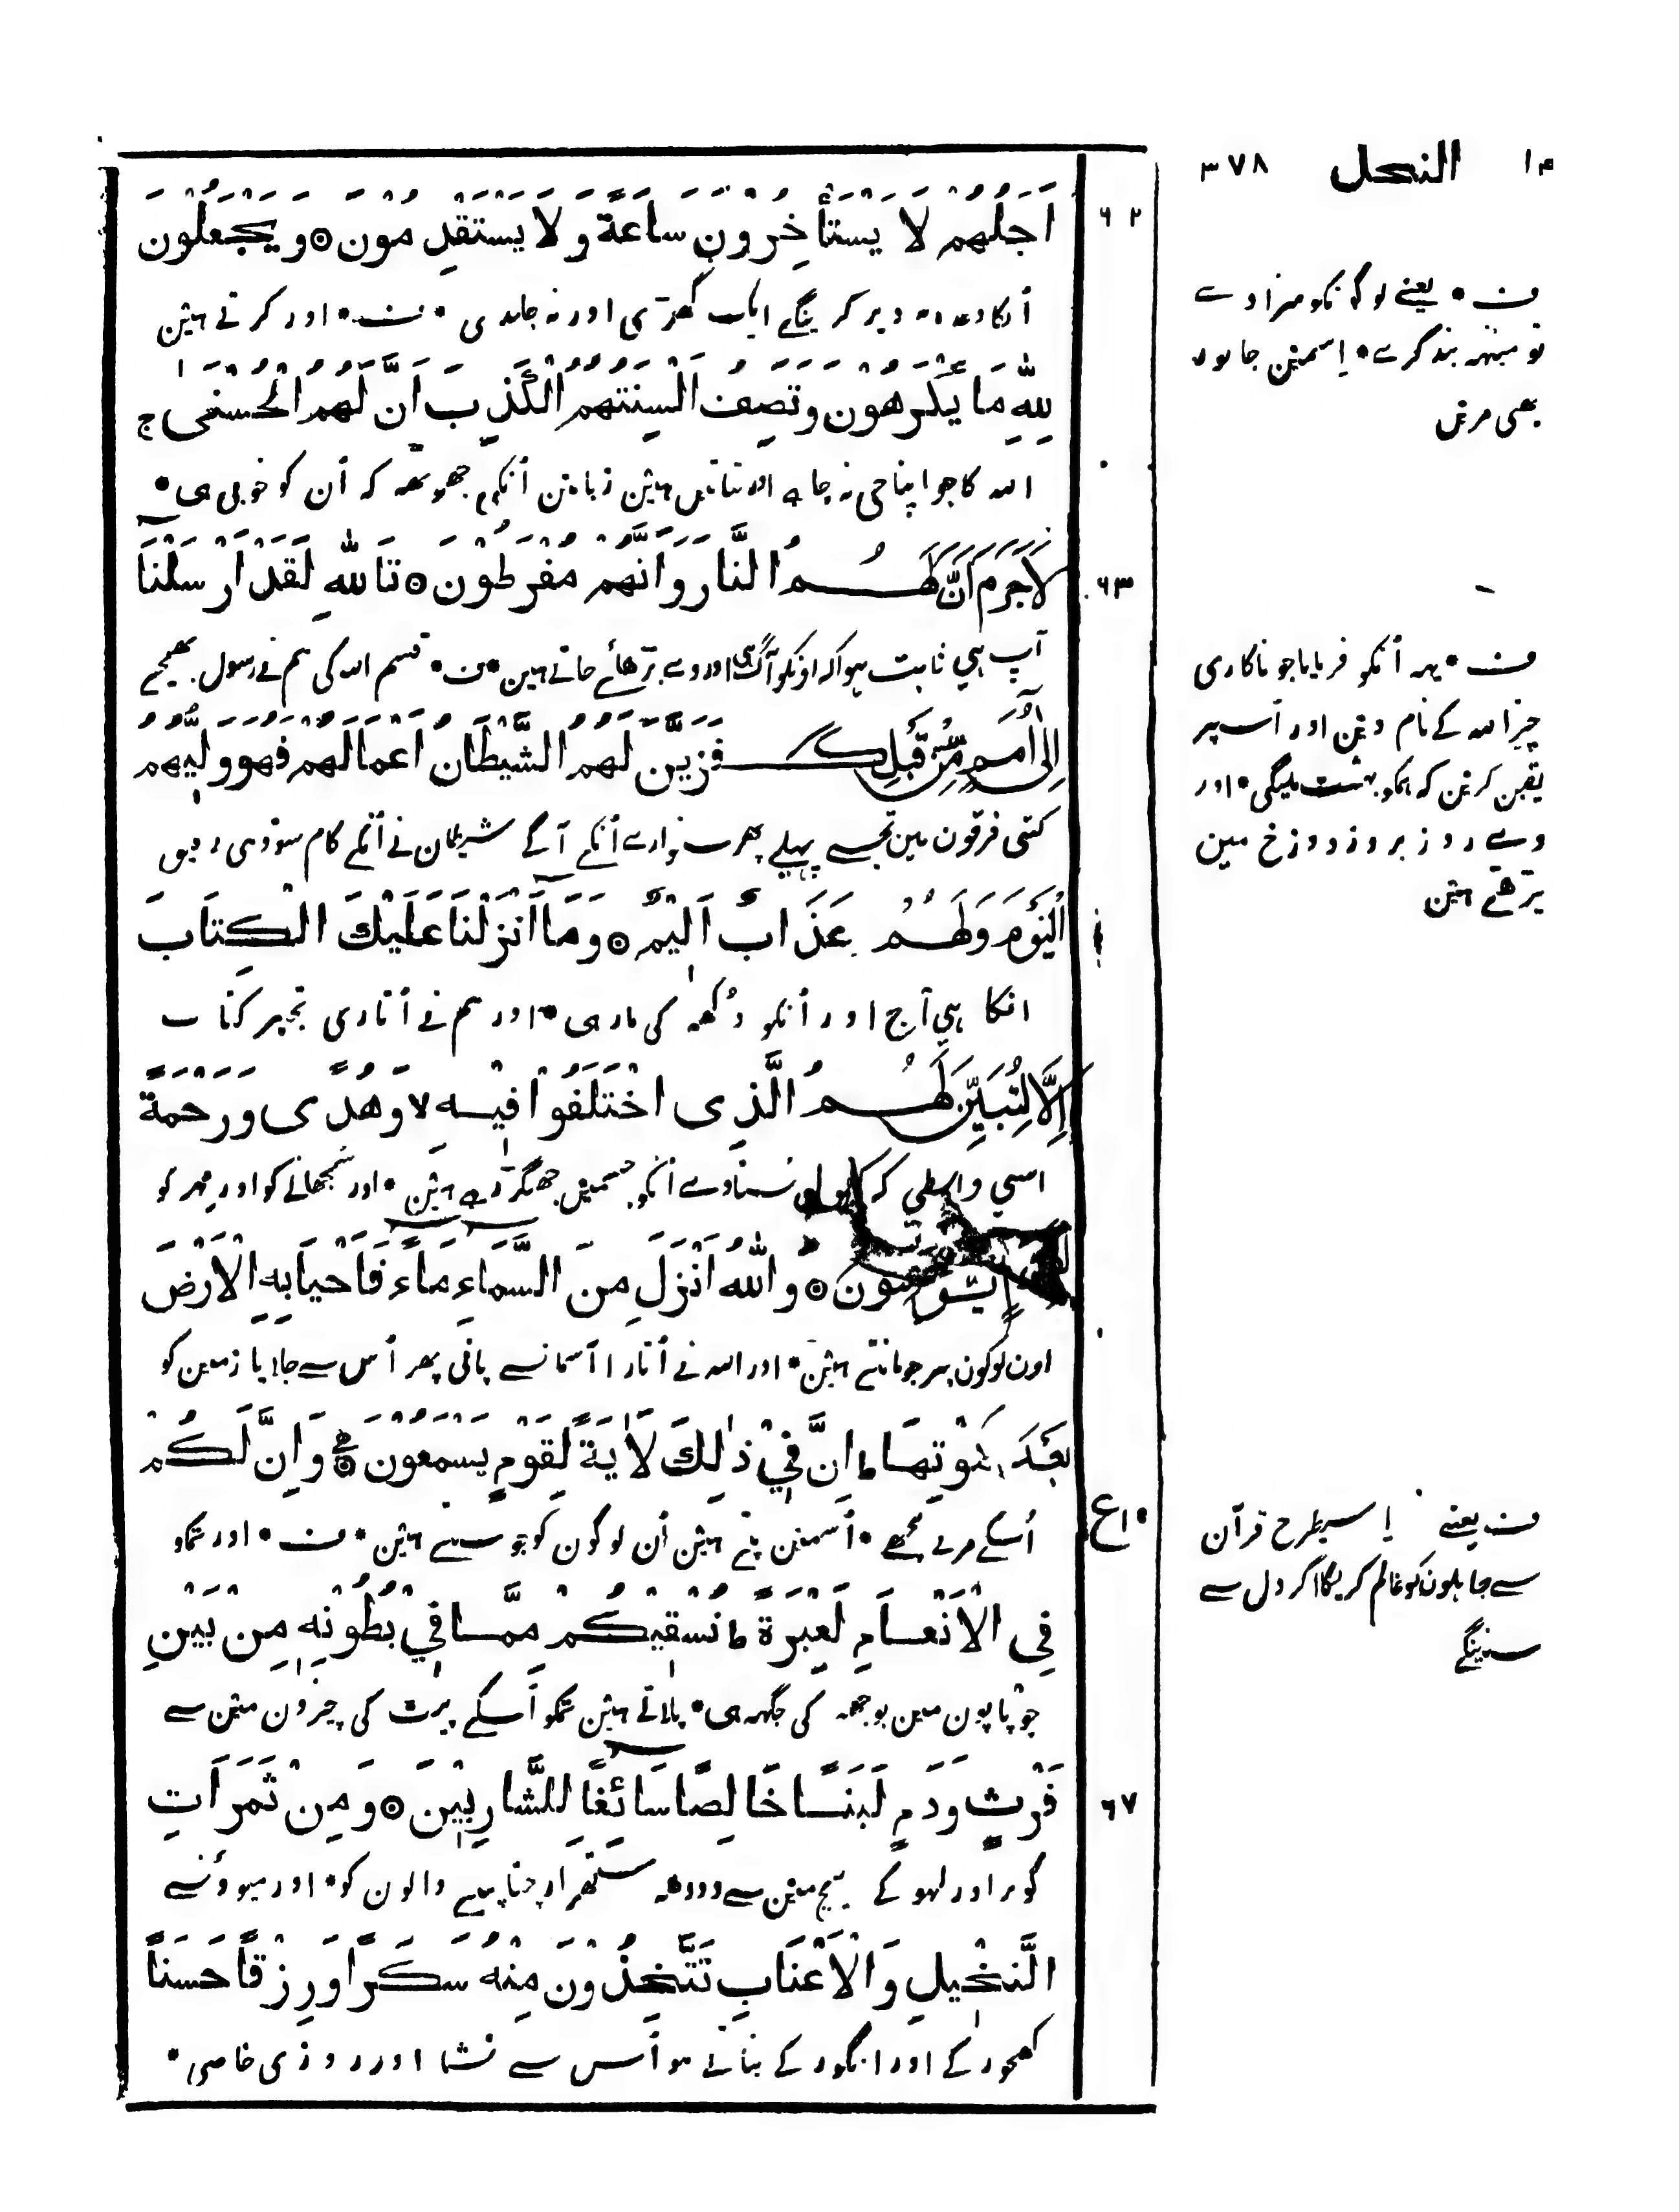 النحل ٣٧٨
اَجَلُهُمْ لَا يَسْتَأْخِرُونَ سَاعَةً وَلَا يَسْتَقْدِمُونَ ۞ وَيَجْعَلُونَ
٦٢
نه دير كرينگے ايک گھڑی اور نہ جلدی • ف • اور کرتے ہين
لِلّٰهِ مَا يَكْرَهُونَ وَتَصِفُ اَلْسِنَتُهُمُ الْكَذِبَ اَنَّ لَهُمُ الْحُسْنٰى ج
الله کا جو اپنا جی نہ چاہے اور بتاتيں ہين زبانين اُنکی جھوٹھ کہ اُن کو خوبی ہی •
لَاجَرَمَ اَنَّ لَهُمُ النَّارَ وَاَنَّهُمْ مُفْرَطُوْنَ ۞ تَاللّٰهِ لَقَدْ اَرْسَلْنَا
٦٣
آپ ہی ثابت ہوا کہ اونکو آگ ہی اور وے بڑھائے جاتے ہين • ف • قسم الله کی ہم نے رسول بھيجے
اِلٰى اُمَمٍ مِّنْ قَبْلِكَ فَزَيَّنَ لَهُمُ الشَّيْطَانُ اَعْمَالَهُمْ فَهُوَ وَلِيُّهُمُ
کتنی فرقون مين تجسے پہلے پھر سنوارے اُنکے آگے شيطان نے اُنکے کام سو وہی رفيق
الْيَوْمَ وَلَهُمْ عَذَابٌ اَلِيْمٌ ۞ وَمَا اَنْزَلْنَا عَلَيْكَ الْكِتَابَ
انکا ہی آج اور اُنکو دُکھہ کی مار ہی • اور ہم نے اُتاری تجپر کتاب
اِلَّا لِتُبَيِّنَ لَهُمُ الَّذِى اخْتَلَفُوْا فِيْهِ لا وَهُدًى وَرَحْمَةً
اسی واسطی کہ سناوے اُنکو جسمين جھگڑ رہے ہين • اور سُجھانے کو اور مہر کو
يُّؤْمِنُونَ ۞ وَاللّٰهُ اَنْزَلَ مِنَ السَّمَاءِ مَاءً فَاَحْيَا بِهِ الْاَرْضَ
اون لوگون پر جو مانتے ہين • اور الله نے اُتارا آسمانسے پانی پھر اُس سے جلايا زمين کو
بَعْدَ مَوْتِهَا ط اِنَّ فِيْ ذٰلِكَ لَاٰيَةً لِّقَوْمٍ يَسْمَعُوْنَ ۞ ع وَاِنَّ لَكُمْ
١٠ع
اُسکے مرے پيچھے • اُسمين پتے ہين اُن لوگون کو جو سنتے ہين • ف • اور تمکو
فِى الْاَنْعَامِ لَعِبْرَةً ط نُسْقِيْكُمْ مِمَّا فِيْ بُطُوْنِهٖ مِنْ بَيْنِ
چوپاپون مين بوجھہ کی جگہہ ہی • پلاتے ہين تمکو اُسکے پيٹ کی چيزون مين سے
فَرْثٍ وَدَمٍ لَبَنًا خَالِصًا سَائِغًا لِلشَّارِبِيْنَ ۞ وَمِنْ ثَمَرَاتِ
٦٧
گوبر اور لہو کے بيچ مين سے دودھہ ستھرا رچتا پينے والون کو • اور ميوونسے
النَّخِيْلِ وَالْاَعْنَابِ تَتَّخِذُوْنَ مِنْهُ سَكَرًا وَرِزْقًا حَسَنًا
کھجور کے اور انگور کے بناتے ہو اُس سے نشا اور روزی خاصی •
ف • يعنے لوگونکو سزا دے
تو مينہہ بند کرے • اِسمين جانور
بھی مرين
ف • يہہ اُنکو فرمايا جو ناکاری
چيز الله کے نام دين اور اُسپر
يقين کرين کہ ہمکو بہشت مليگی • اور
وے روز بروز دوزخ مين
بڑھتے ہين
ف يعنے اِسيطرح قرآن
سے جاہلونکو عالم کريگا اگر دل سے
سنينگے